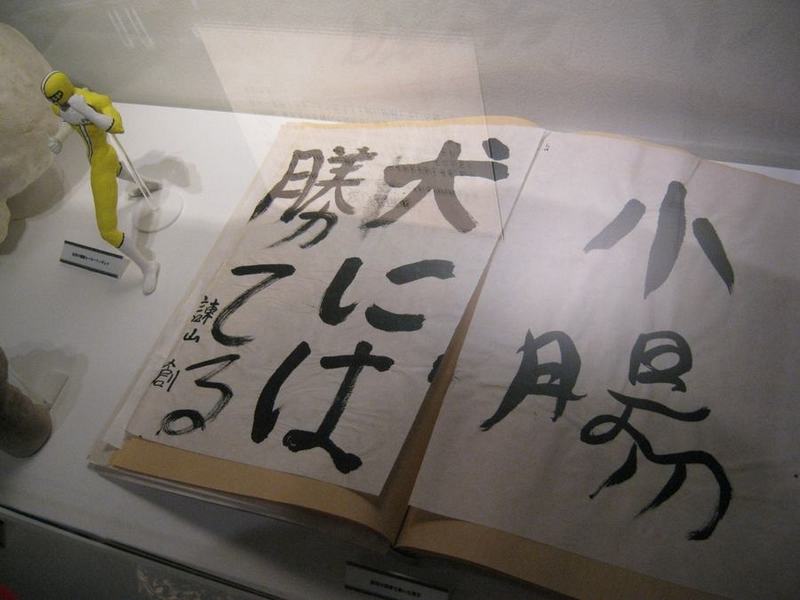 小腸
犬には
勝てる
諫山 創